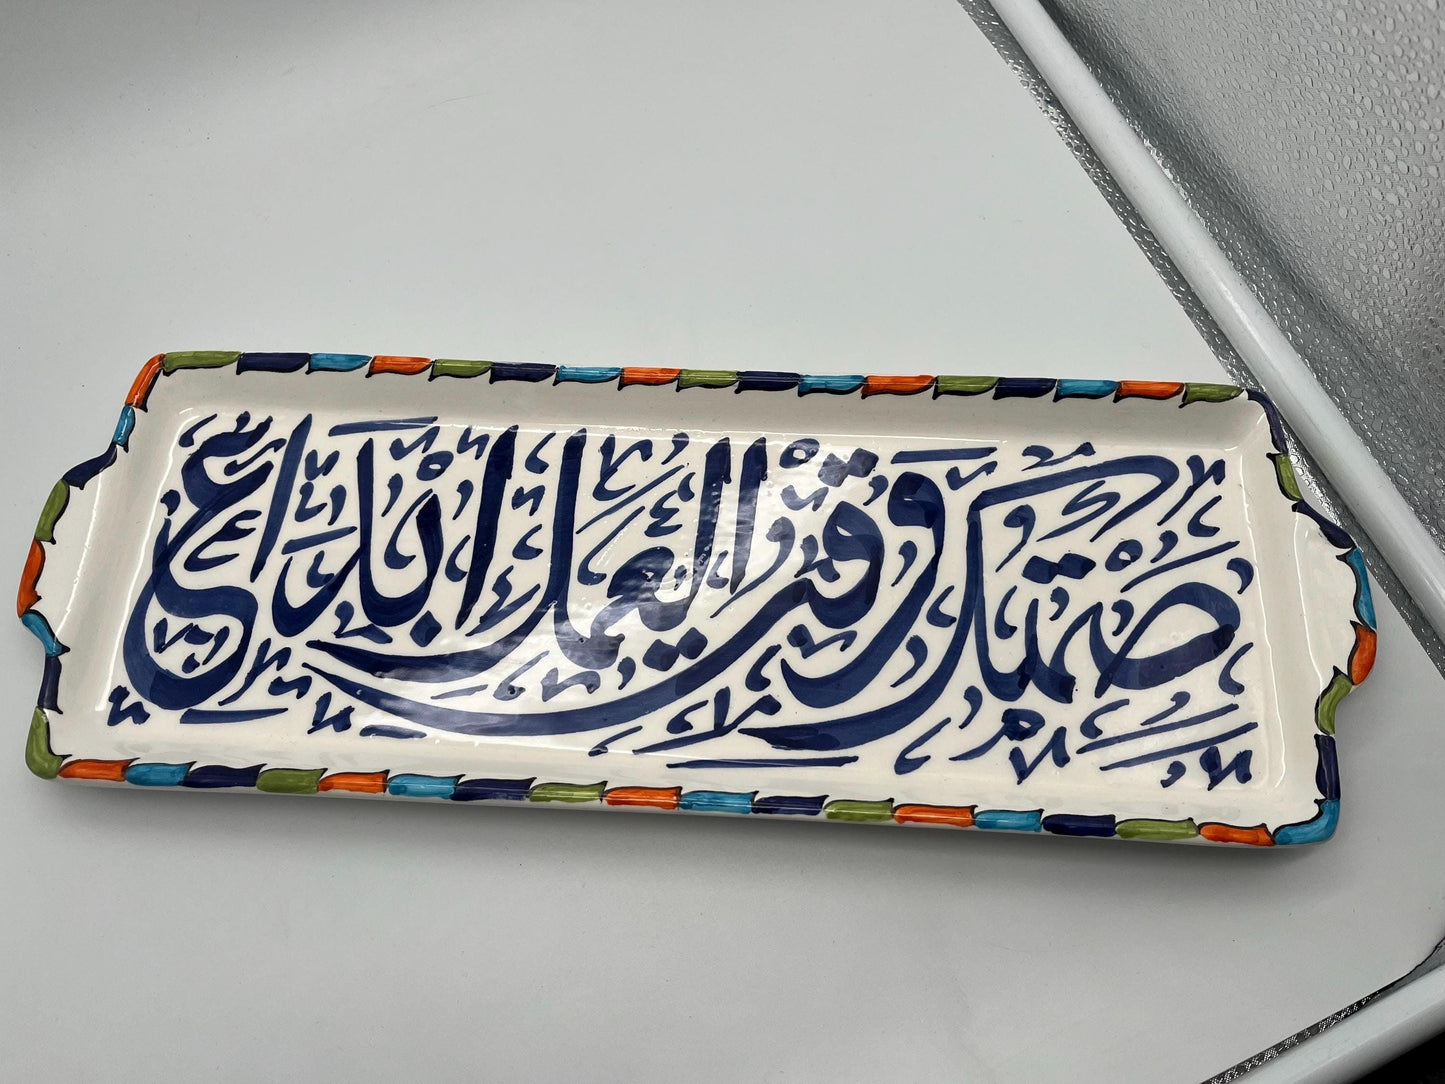 صمتك وقت العمل ابداع